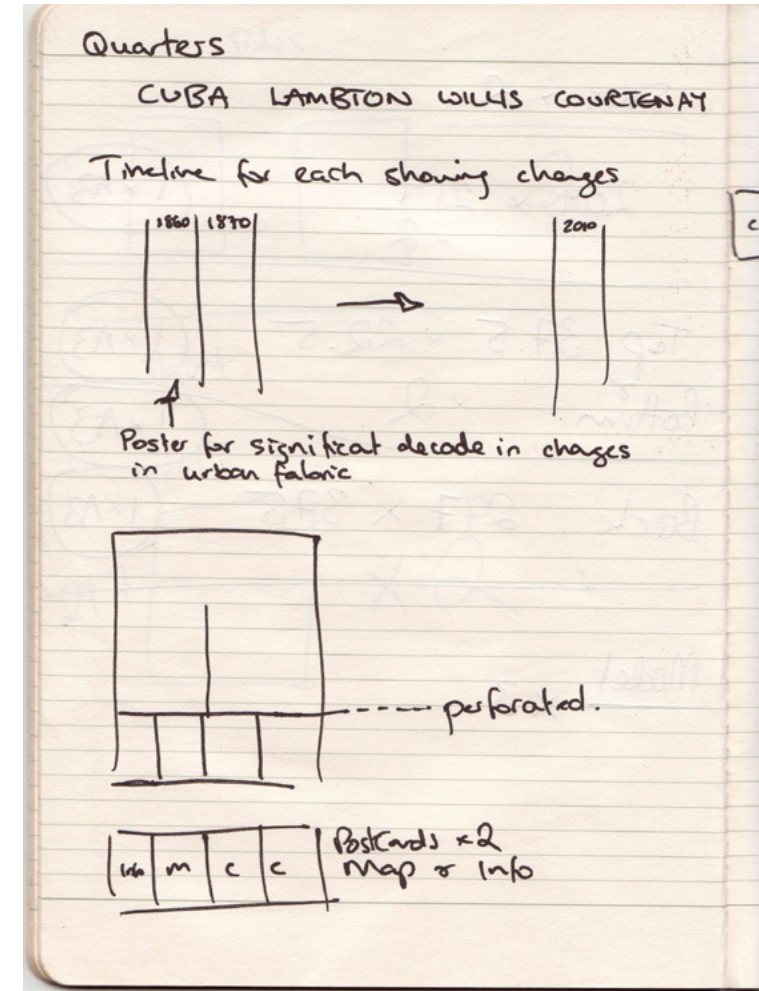 Quarters
CUBA LAMBTON WILLIS COURTENAY
Timeline for each showing changes
1860 1870 2010
Poster for significat decade in changes
in urban fabric
perforated.
Postcards x2
Info m c c Map & Info
c